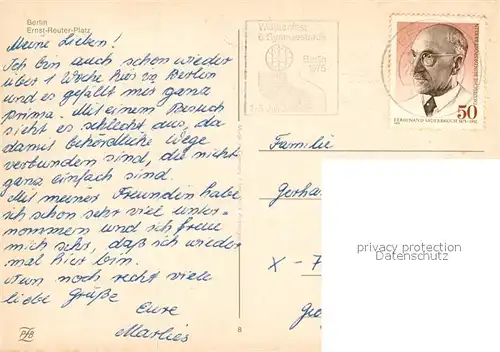 Berlin
Ernst-Reuter-Platz
Meine Lieben!
Ich bin auch schon wieder
über 1 Woche hier in Berlin
und es gefällt mir ganz
prima. Mit einem Besuch
sieht es schlecht aus, da
damit behördliche Wege
verbunden sind, die nicht
ganz einfach sind.
Mit meiner Freundin habe
ich schon sehr viel unter-
nommen und ich freue
mich sehr, daß ich wieder
mal hier bin.
Nun noch recht viele
liebe Grüße
Eure
Marlies
PfB
8
Berlin
1975
50
FERDINAND SAUERBRUCH 1875-1951
Familie
Gerha
X-7
privacy protection
Datenschutz